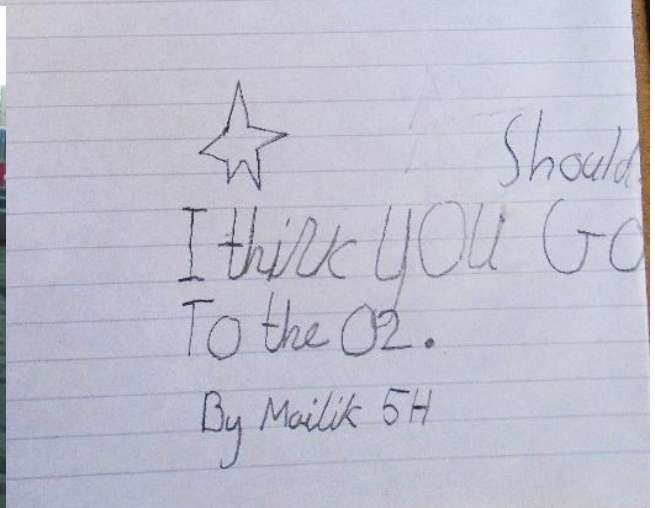 Should
I think you Go
To the O2.
By Mailik 5H